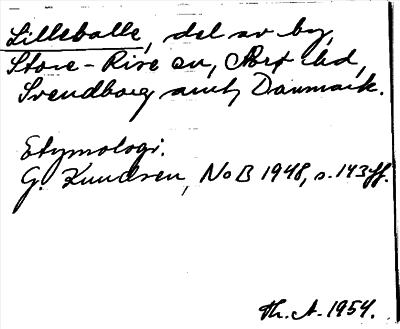 Lilleballe, del av by,
Store-Rise sn, hd,
Svendborg amt, Danmark.
Etymologi.
G. Knudsen, NoB 1948, s. 143 ff.
Th. A. 1954.